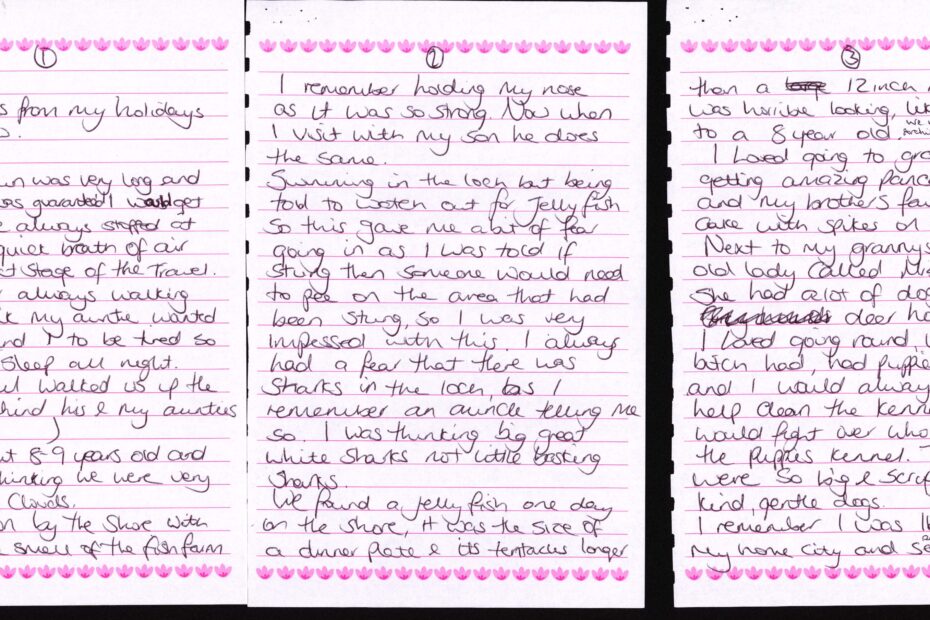 1
s from my holidays
o.
un was very long and
was guaranted I would get
e always stopped at
quick breath of air
t Stage of the Travel.
always walking
k my auntie wanted
nd I to be tired so
sleep all night.
ul walked us up the
hind his & my aunties
t 8-9 years old and
hinking we were very
Clouds.
on by the Shore with
smell of the fish farm
2
I remember holding my nose
as it was so strong. Now when
I visit with my son he does
the same.
Swimming in the loch but being
told to watch out for Jellyfish
So this gave me abit of fear
going in as I was told if
Stung then someone would need
to pee on the area that had
been Stung, So I was very
impressed with this. I always
had a fear that there was
Sharks in the loch, as I
remember an auncle telling me
so. I was thinking big great
white Sharks not little basking
Sharks.
We found a jellyfish one day
on the shore, it was the size of
a dinner plate & its tentacles longer
3
than a 12 inch
was horribe looking, lik
to a 8 year old. We
I Loved going to gra
getting amazing panc
and my brother's fav
cake with Spikes on
Next to my grannys
old lady Called M
She had alot of dog
deer ho
I Loved going round, w
bitch had, had puppie
and I would alway
help clean the Kenne
would fight over who
the puppies Kennel. T
were so big & scruf
kind, gentle dogs.
I remember I was 1
my home City and se